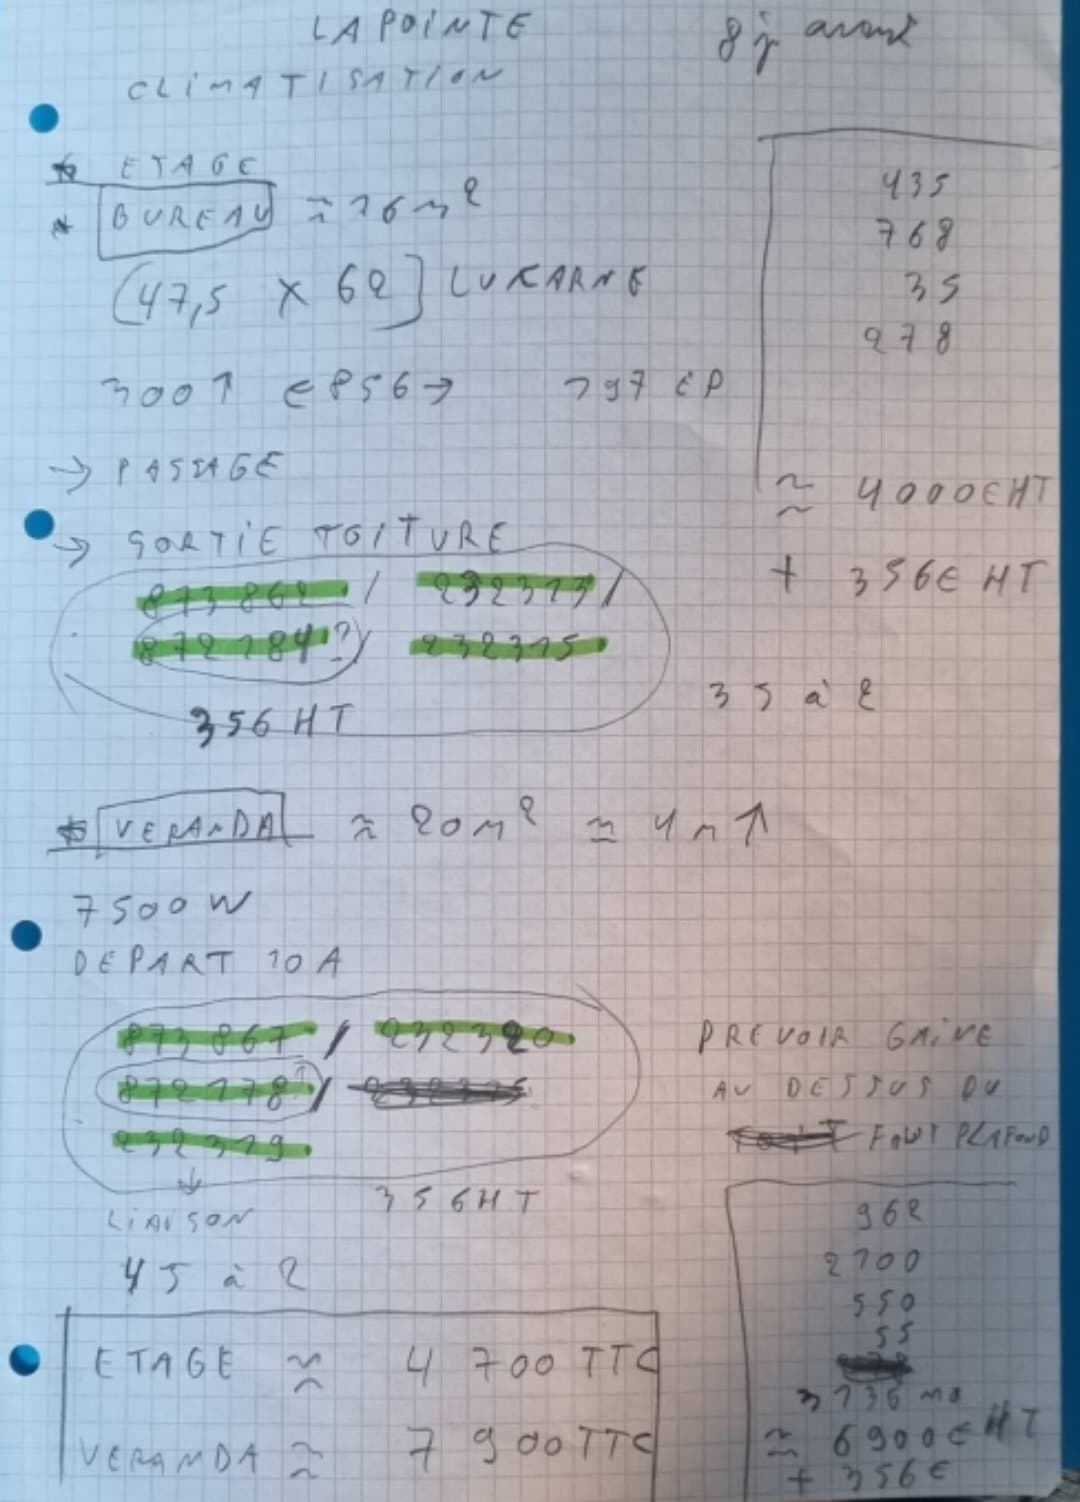 LAPOINTE
8j avant
CLIMATISATION
ETAGE
BUREAU ≈ 16 m²
(47,5 × 62) LUKARNE
300↑ ∈856→ 197 EP
→ PASSAGE
→ SORTIE TOITURE
873862 / 232313 /
872184? / 232315
356 HT
435
768
35
278
≈ 4000€ HT
+ 356€ HT
3J à 2
VERANDA ≈ 20 m² ≈ 4m ↑
7500 W
DEPART 10 A
873867 / 232320
872178? /
232319
↓
LIAISON
356 HT
4J à 2
PREVOIR GAINE
AU DESSUS DU
FAUX PLAFOND
962
2100
550
55
3136 mo
≈ 6900€ HT
+ 356€
ETAGE ≈ 4 700 TTC
VERANDA ≈ 7 900 TTC